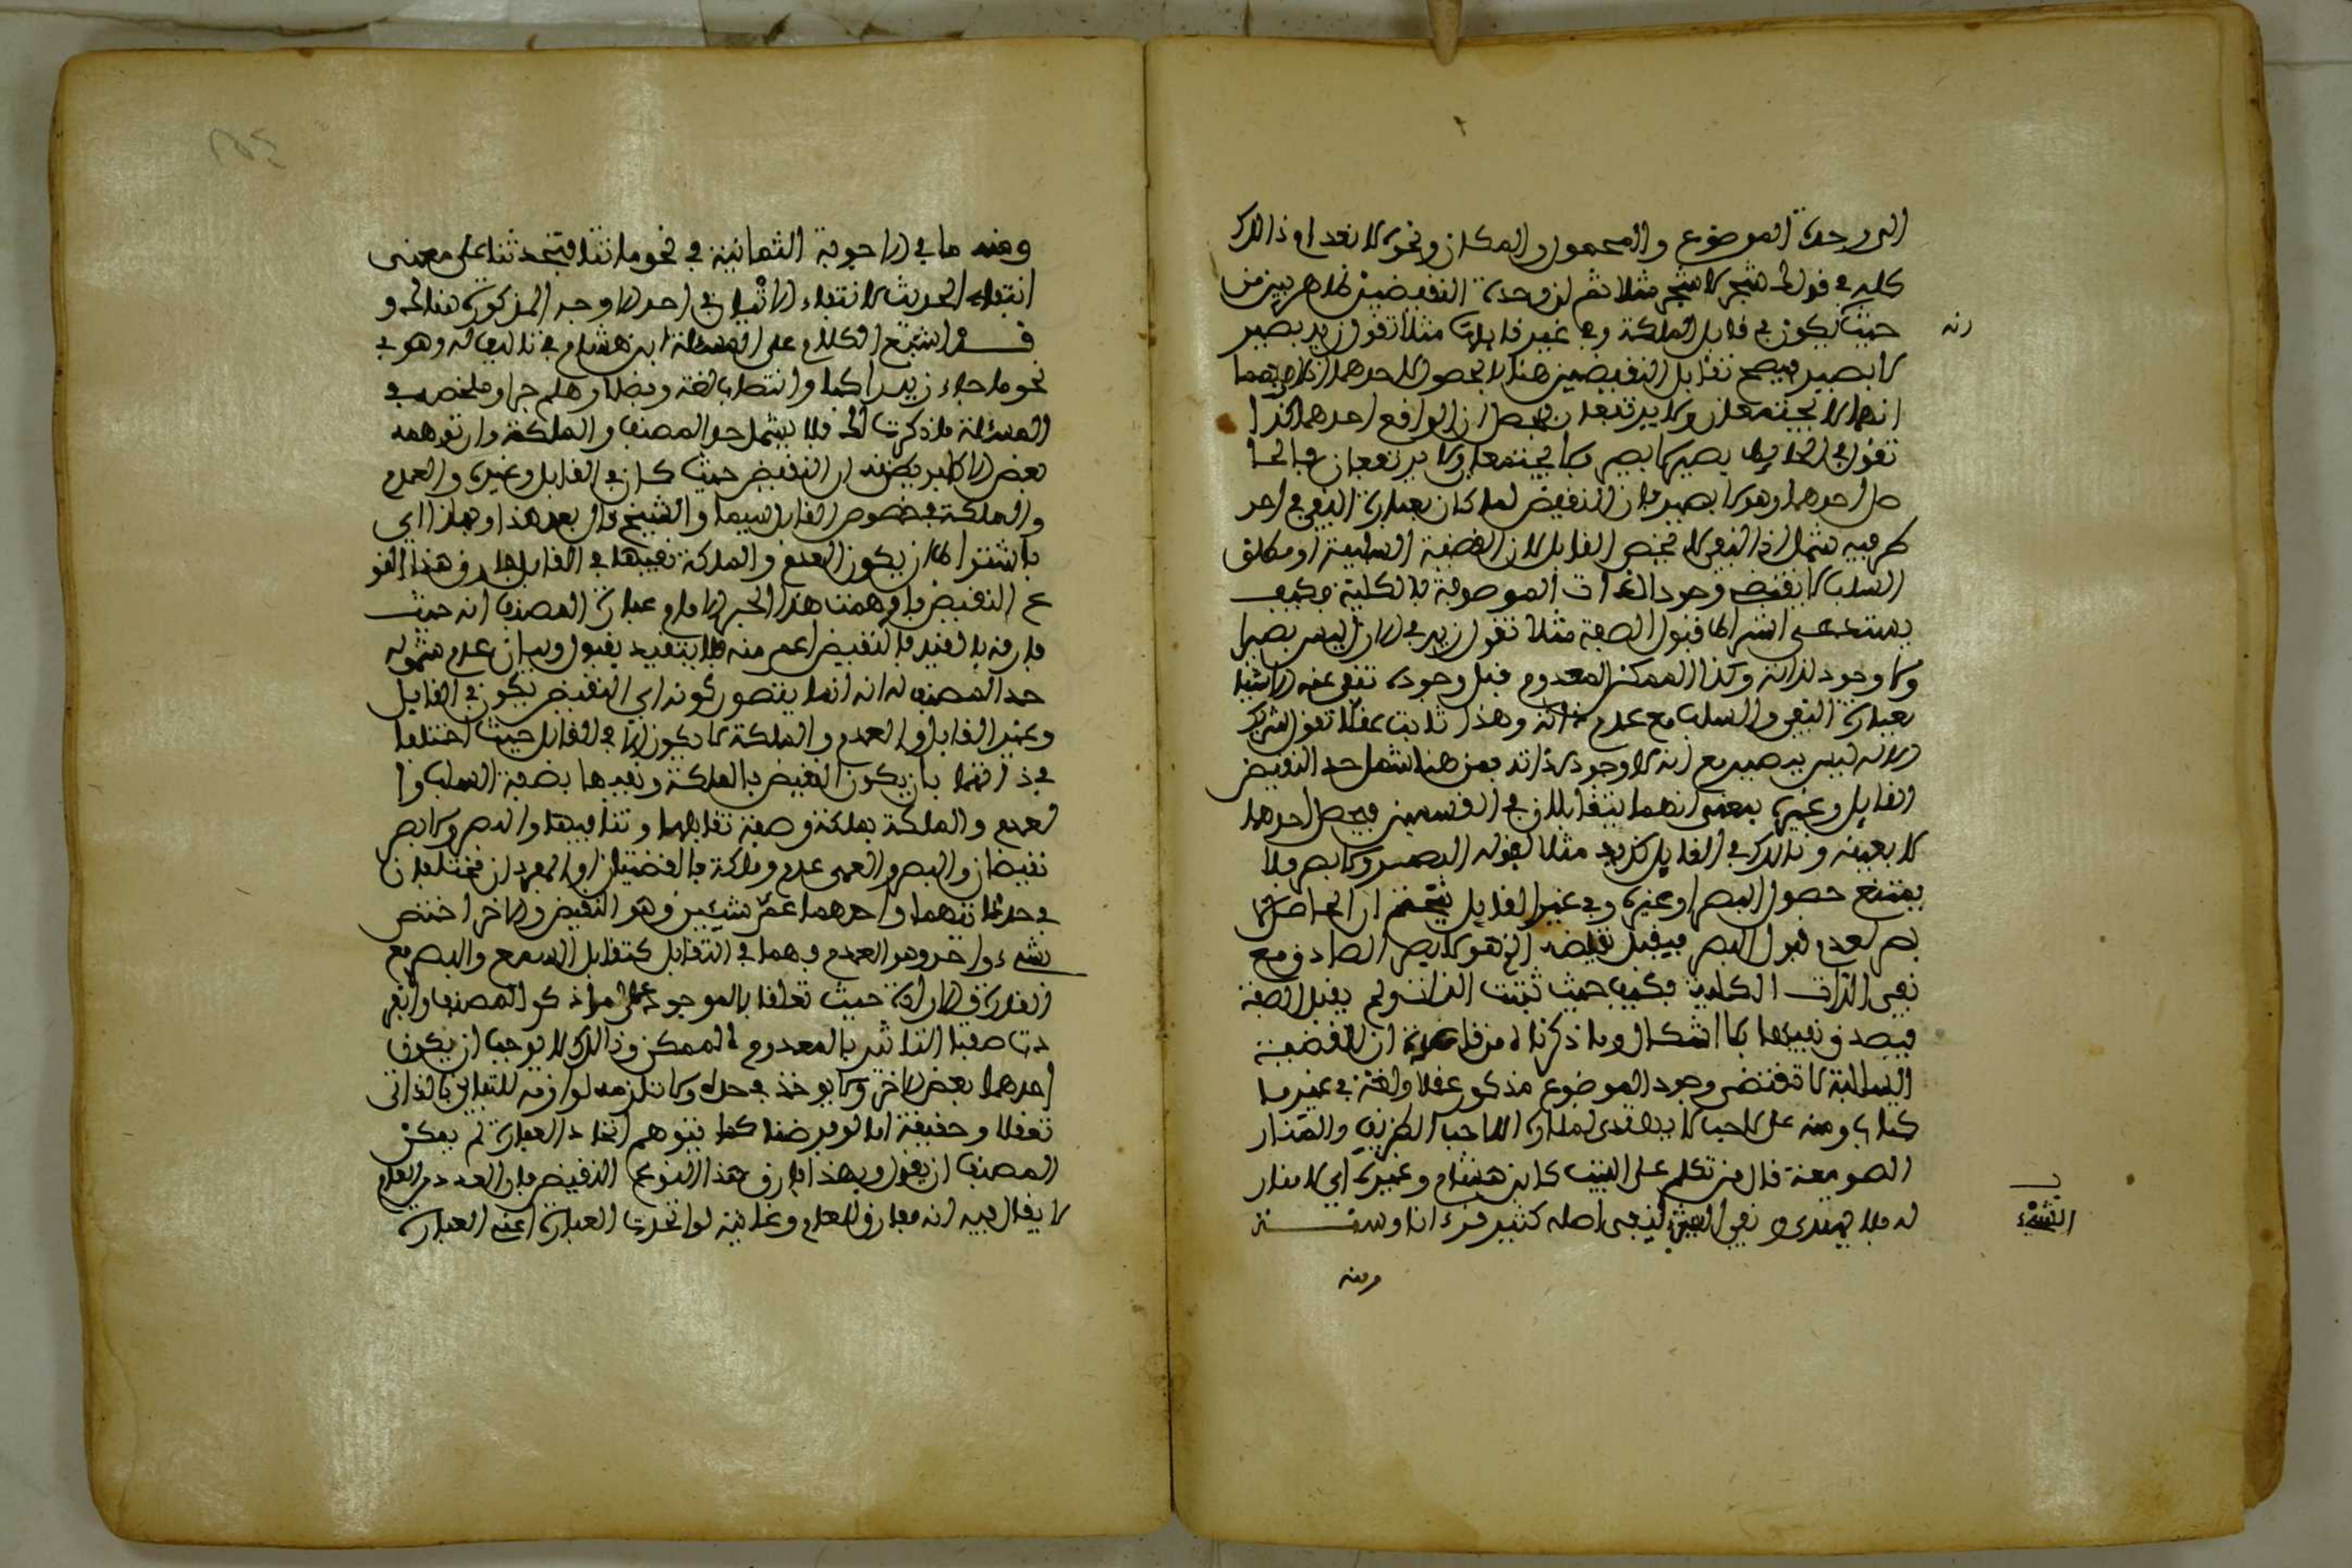 الى وحدة الموضوع والمحمول والمكان ونحوه لانعدام ذالك
كله في قولك شجر لا شجر مثلا ثم ان وحدة النقيضين ظاهر بين من
حيث تكون في قابل الملكة وفي غير قابلها مثلا تقول زيد بصير
لا بصير فيصح تقابل النقيضين هنا لا بحصول احدهما
انهما لا يجتمعان ولا يرتفعان فيحصل ان الواقع احدهما كذا
تقول في الحائط بصير لا بصير لا يجتمعا ولا يرتفعان فالحا
صل احدهما وهو لا بصير فان النقيض لما كان بعبارة النفي في احد
طرفيه شمل اذ النفي لا يخص القابل لان القضية السلبية او مطلق
السلب لا يقتضي وجود الذات الموصوفة بالكلية فكيف
يستدعى اشتراط قبول الصفة مثلا تقول زيد في الازل ليس بصيرا
ولا وجود لذاته وكذا الممكن المعدوم قبل وجوده تنفي عنه الاشيا
بعبارة النفي والسلب مع عدم ذاته وهذا ثابت عقلا تقول شريك
الاله ليس ببصير مع انه لا وجود لذاته فمن هنا شمل حد النقيض
القابل وغيره بمعنى انهما يتقابلان في القسمين فيحصل احدهما
لا بعينه وذالك في القابل كزيد مثلا لقوله البصر ولا بصر فلا
يمتنع حصول البصر او غيره وفي غير القابل يتحتم ان الحاصل لا
بصر لعدم قبول البصر فيقبل نقيضه الذي هو لا بصر الصادق مع
نفي الذات الكلية فكيف حيث ثبتت الذات ولم يقبل الصفة
فيصدق نفيها بلا اشكال وما ذكرنا من قاعدة ان القضية
السالبة لا تقتضي وجود الموضوع مذكور عقلا ولغة في غير ما
كتاب ومنه على لاحب لا يهتدى لمناره اللاحب الطريق والمنار
الصومعة قال من تكلم على البيت كابن هشام وغيره اي لا منار
له فلا يهتدى ونفي الشيء لنفي اصله كثير قرءانا وسنة
ومنه
انه
الشيء
ومنه ما في الاجوبة الثمانية في نحو ما تاتينا فتحدثنا على معنى
انتفاء الحديث لانتفاء الاتيان في احد الاوجه المذكورة هنالك و
قد اشبع الكلام على المسئلة ابن هشام في تئاليفه وهو في
نحو ما جاء زيد راكبا وانتصاب لغة وفضلا وهلم جرا وملخص في
المسئلة ما ذكرت لك فلا يشمل حد المصنف والملكة وان توهمه
بعض الاكابر بظنه ان النقيض حيث كان في القابل وغيره والعدم
والملكة في خصوص القابل سيما والشيخ قال بعد هذا وبهاذا اي
باشتراط ان يكون العدم والملكة نفيها في القابل فارق هذا النو
ع النقيض فاوهمت هذا الحبر الامام عبارة المصنف انه حيث
فارقه بالقيد فالنقيض اعم منه فلا يتقيد بقبول وبيان عدم شموله
حد المصنف له انه انما يتصور كونه اي النقيض يكون في القابل
وغير القابل والعدم والملكة لا يكون الا في القابل حيث اختلفا
في ذاتهما بان يكون النقيض بالملكة ونفيها بصفة السلب وا
لعدم والملكة بملكة وصفة تقابلها وتنافيها والبصر ولا بصر
نقيضان والبصر والعمى عدم وملكة فالقضيتان او المفردان مختلفان
في حد ذاتهما واحدهما عم شيئين وهو النقيض والاخر اختص
بشيء واحد وهو العدم فهما في التقابل كتقابل السمع والبصر مع
القدرة والارادة حيث تعلقا بالموجود على ما ذكر المصنف وانفر
دت صفتا التاثير بالمعدوم الممكن وذالك لا يوجب ان يكون
احدهما بعض الاخر ولا يوخذ في حده ولا تلزمه لوازمه للتباين بالذاتى
تعقلا وحقيقة اما لو فرضنا كما يتوهم اتحاد العبارة لم يمكن
المصنف ان يقول وبهذا فارق هذا النوع النقيض فان العدد من العام
لا يقال فيه انه مفارق للعام وغايته لو اتحدت العبارة اعني العبارة